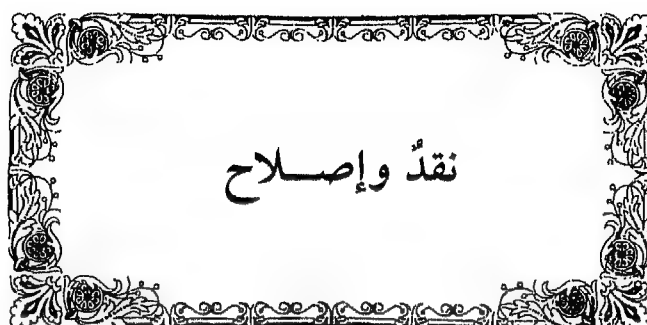 نقدٌ وإصـــلاح